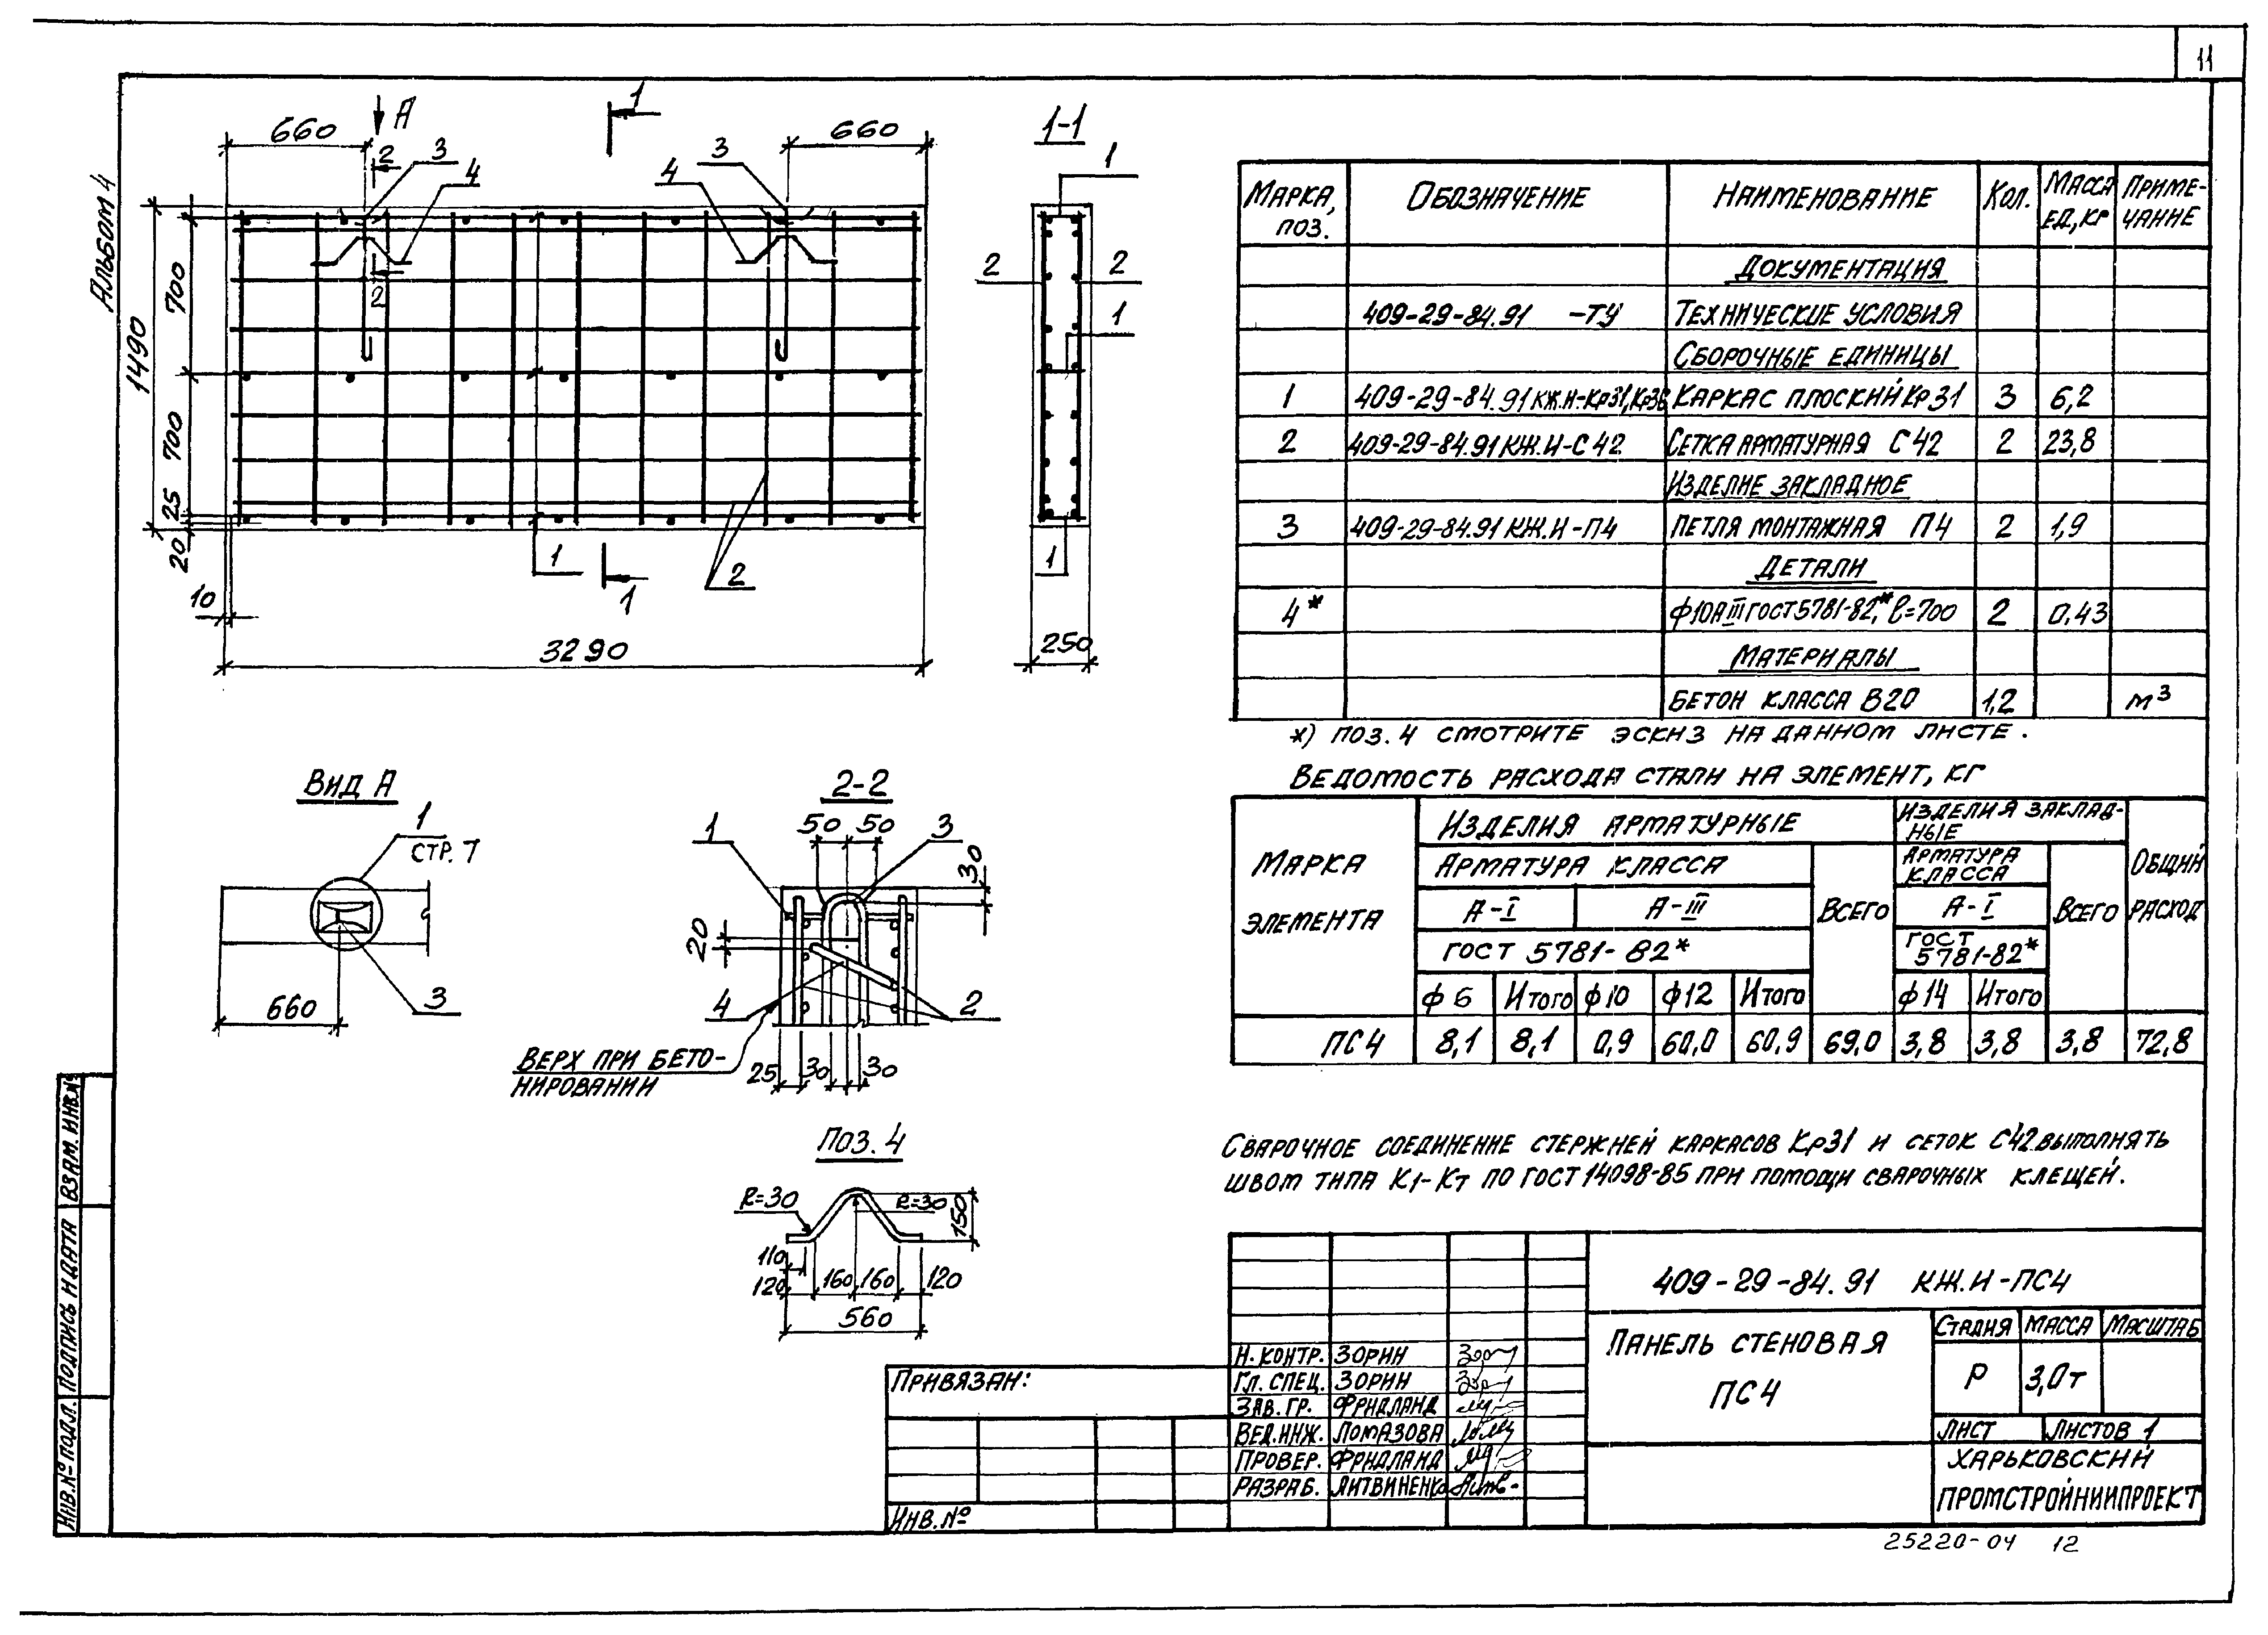 11
Альбом 4
660
А
1
660
1-1
2
3
4
3
4
1
2
2
1
2
1490
700
700
25
20
10
1
1
2
1
3290
250
Марка, поз. Обозначение Наименование Кол. Масса ед, кг Приме-чание
Документация
409-29-84.91 -ТУ Технические условия
Сборочные единицы
1 409-29-84.91 КЖ.И-Кр31, Кр36 Каркас плоский Кр31 3 6,2
2 409-29-84.91 КЖ.И-С42 Сетка арматурная С42 2 23,8
Изделие закладное
3 409-29-84.91 КЖ.И-П4 Петля монтажная П4 2 1,9
Детали
4* ф10АIII ГОСТ 5781-82*, ℓ=700 2 0,43
Материалы
Бетон класса В20 1,2 м³
*) поз. 4 смотрите эскиз на данном листе.
Ведомость расхода стали на элемент, кг
Марка элемента
Изделия арматурные
Изделия заклад-ные
Общий расход
Арматура класса
Всего
Арматура класса
Всего
А-I А-III А-I
ГОСТ 5781-82* ГОСТ 5781-82*
ф6 Итого ф10 ф12 Итого ф14 Итого
ПС4 8,1 8,1 0,9 60,0 60,9 69,0 3,8 3,8 3,8 72,8
Вид А
1
стр. 7
660
3
2-2
1
50
50
3
30
20
4
2
Верх при бето-
нировании
25
30
30
Поз. 4
R=30
R=30
150
110
120
160
160
120
560
Сварочное соединение стержней каркасов Кр31 и сеток С42 выполнять
швом типа К1-Кт по ГОСТ 14098-85 при помощи сварочных клещей.
409-29-84.91 КЖ.И-ПС4
Панель стеновая
ПС4
Стадия Масса Масштаб
Р 3,0т
Лист Листов 1
Харьковский
Промстройниипроект
Н. контр. Зорин
Гл. спец. Зорин
Зав. гр. Фридланд
Вед. инж. Ломазова
Провер. Фридланд
Разраб. Литвиненко
Привязан:
Инв. №
Взам. инв.№
Подпись и дата
Инв. № подл.
25220-04 12